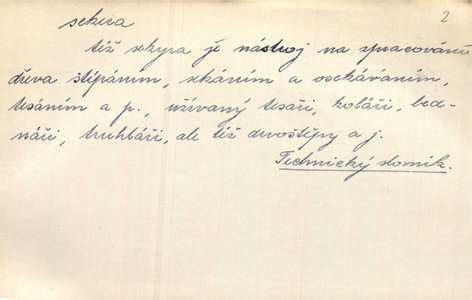 sekera
2
též sekyra je nástroj na zpracování
dřeva štípáním, sekáním a osekáváním,
tesáním a p., užívaný tesaři, koláři, bed-
náři, truhláři, ale též drvoštěpy a j.
Technický slovník.